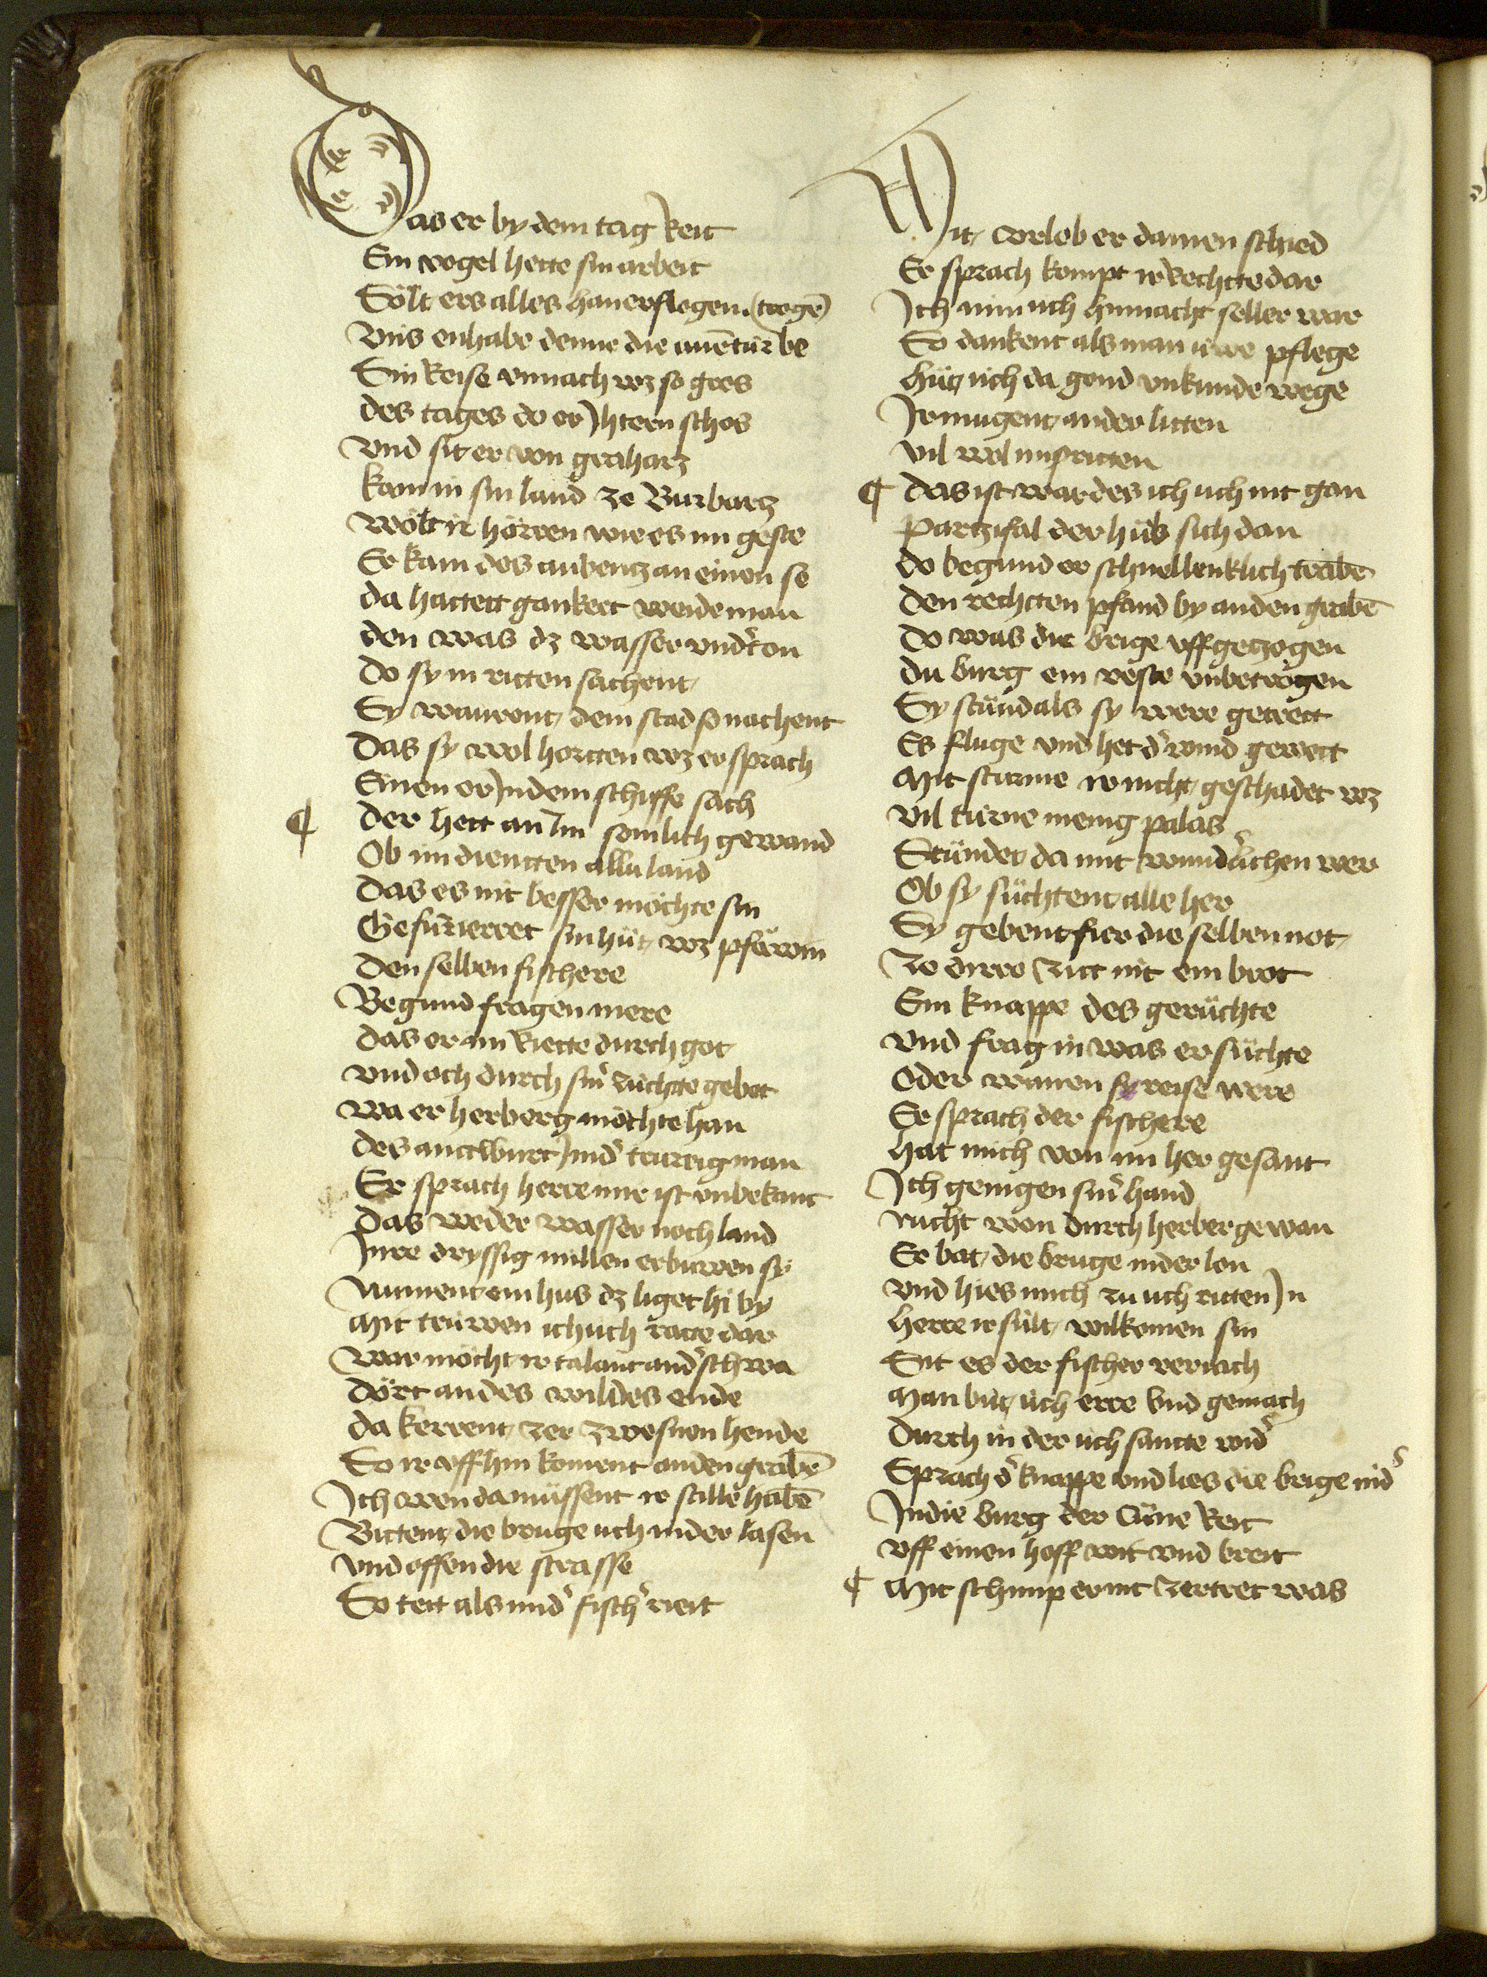 Das er by dem tag Reit
Ein vogel hette sin arbeit
Sölt ers alles han erflogen (trogē)
Vnis enhabe denne die auētur be
Sin Reise vnnach wz so gros
des tages do er Jhtern schos
Vnd sit er von graharz
kam in sin land ze Burbartz
Wölt ir hörren wie es im geste
Er kam des aubentz an einen se
da hattett gankert weideman
den was dz wasser vndͬ ton
do sy in ritten sachent
Sy wauront dem stad so nachent
Das sy wol hortten wz er sprach
Einen er Jn dem schiffe sach
¶ Der hett an Im somlich gewand
Ob im diencten allu land
Das es nit besser möchte sin
Gefurierret sin hüt wz pfäwin
Den selben fischere
Begund fragen mere
das er im Riette durch got
vnd och durch sinͬ züchtte gebot
wa er herberg möchte han
des anttwurt Jm dͬ trureig man
Er sprach herre mir ist vnbekant
Das weder wasser noch land
Jnre dryssig millen erbuwen sy
Nument ein hus dz liget hi by
Mit trüwen ich uch ratte dar
War möcht ir talant andͬschwa
dört an des wildes ende
da kerrent zer zwesuen hende
So ir vff hin koment an den grabē
Jch wen da müssent ir stille habē
Bittent die bruge uch nider lasen
Vnd offen die strasse
Er tett als im dͬ fischͬ riett
Mit vrlob er dannen schied
Er sprach kompt ir Rechtte dar
Jch nim uch hinnacht selber war
So dankent als man uwe pflege
hüt uch da gond vnkunde wege
Jr mugent an der litten
vil wol misritten
¶ das ist war des ich uch nit gan
Partzifal der hüb sich dan
do begund er schnellenklich trabē
den rechtten pfand by an den grabē
do was die brige vff getzogen
du burg ein veste vnbetrogen
Sy stünd als sy were getrett
Es fluge vnd het dͬ wind gewett
Mit sturme ir nicht geschadet wz
Vil türne menig palas
Stündet da mit wundͬlichen wer
Ob sy süchtent alle her
Sy gebent fier die selben not
Ze dirre zitt nit ein brot
Ein knappe des gerüchte
vnd frag in was er süchte
Oder wannen sy reise were
Er sprach der fischere
hat mich von im her gesant
Jch genigen sinͬ hand
nucht won durch herberge wan
Er bat die bruge nider lon
vnd hies mich zu uch ritten Jn
herre ir sült wilkomen sin
Sit es der fischer veriach
Man büt üch erre vnd gemach
Durch in der uch sancte widͬ
Sprach dͬ knappe vnd lies die brige nidͬ
Jn die burg der Cüne Reit
vff einen hoff wit vnd breit
¶ Mit schimp er nit zertret was